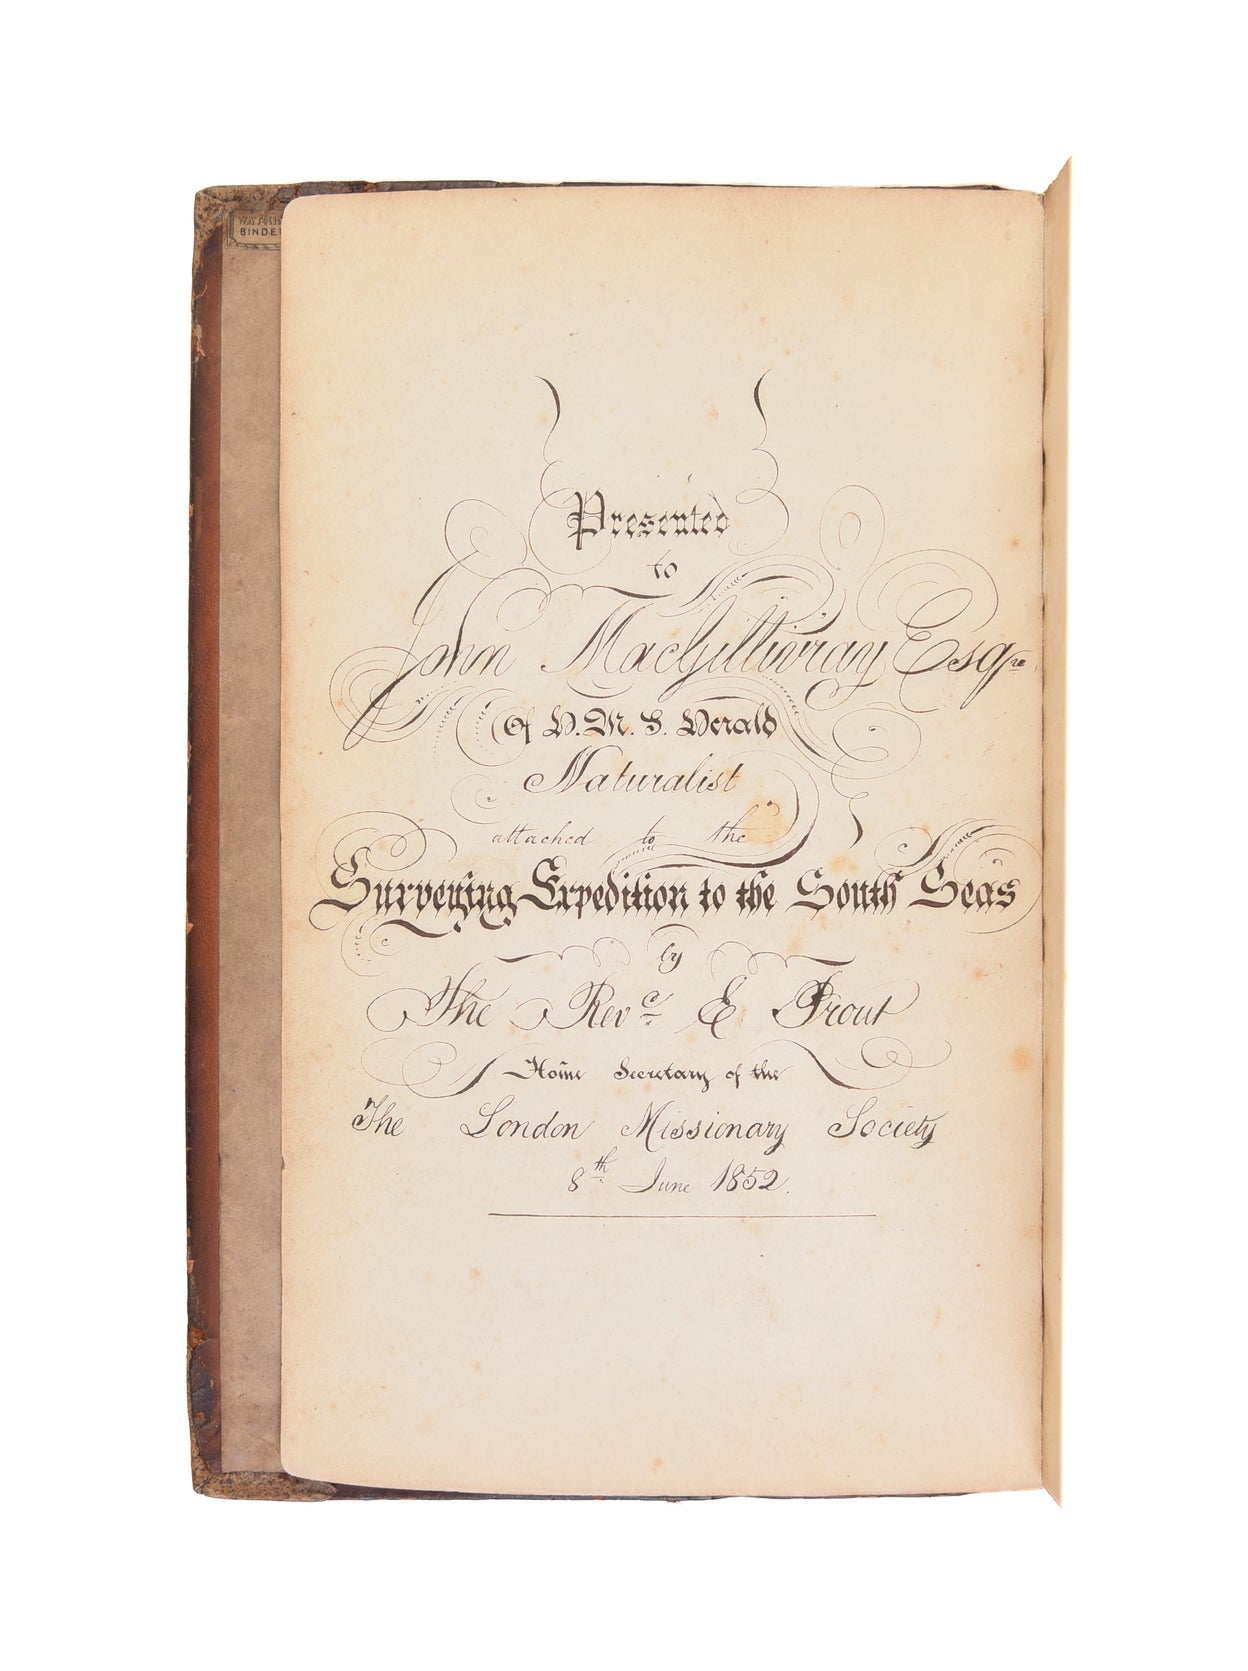 BINDE
Presented
to
John MacGillivray Esqre
Of H.M.S. Herald
Naturalist
attached to the
Surveying Expedition to the South Seas
by
The Revd E Prout
Home Secretary of the
The London Missionary Society
8th June 1852.